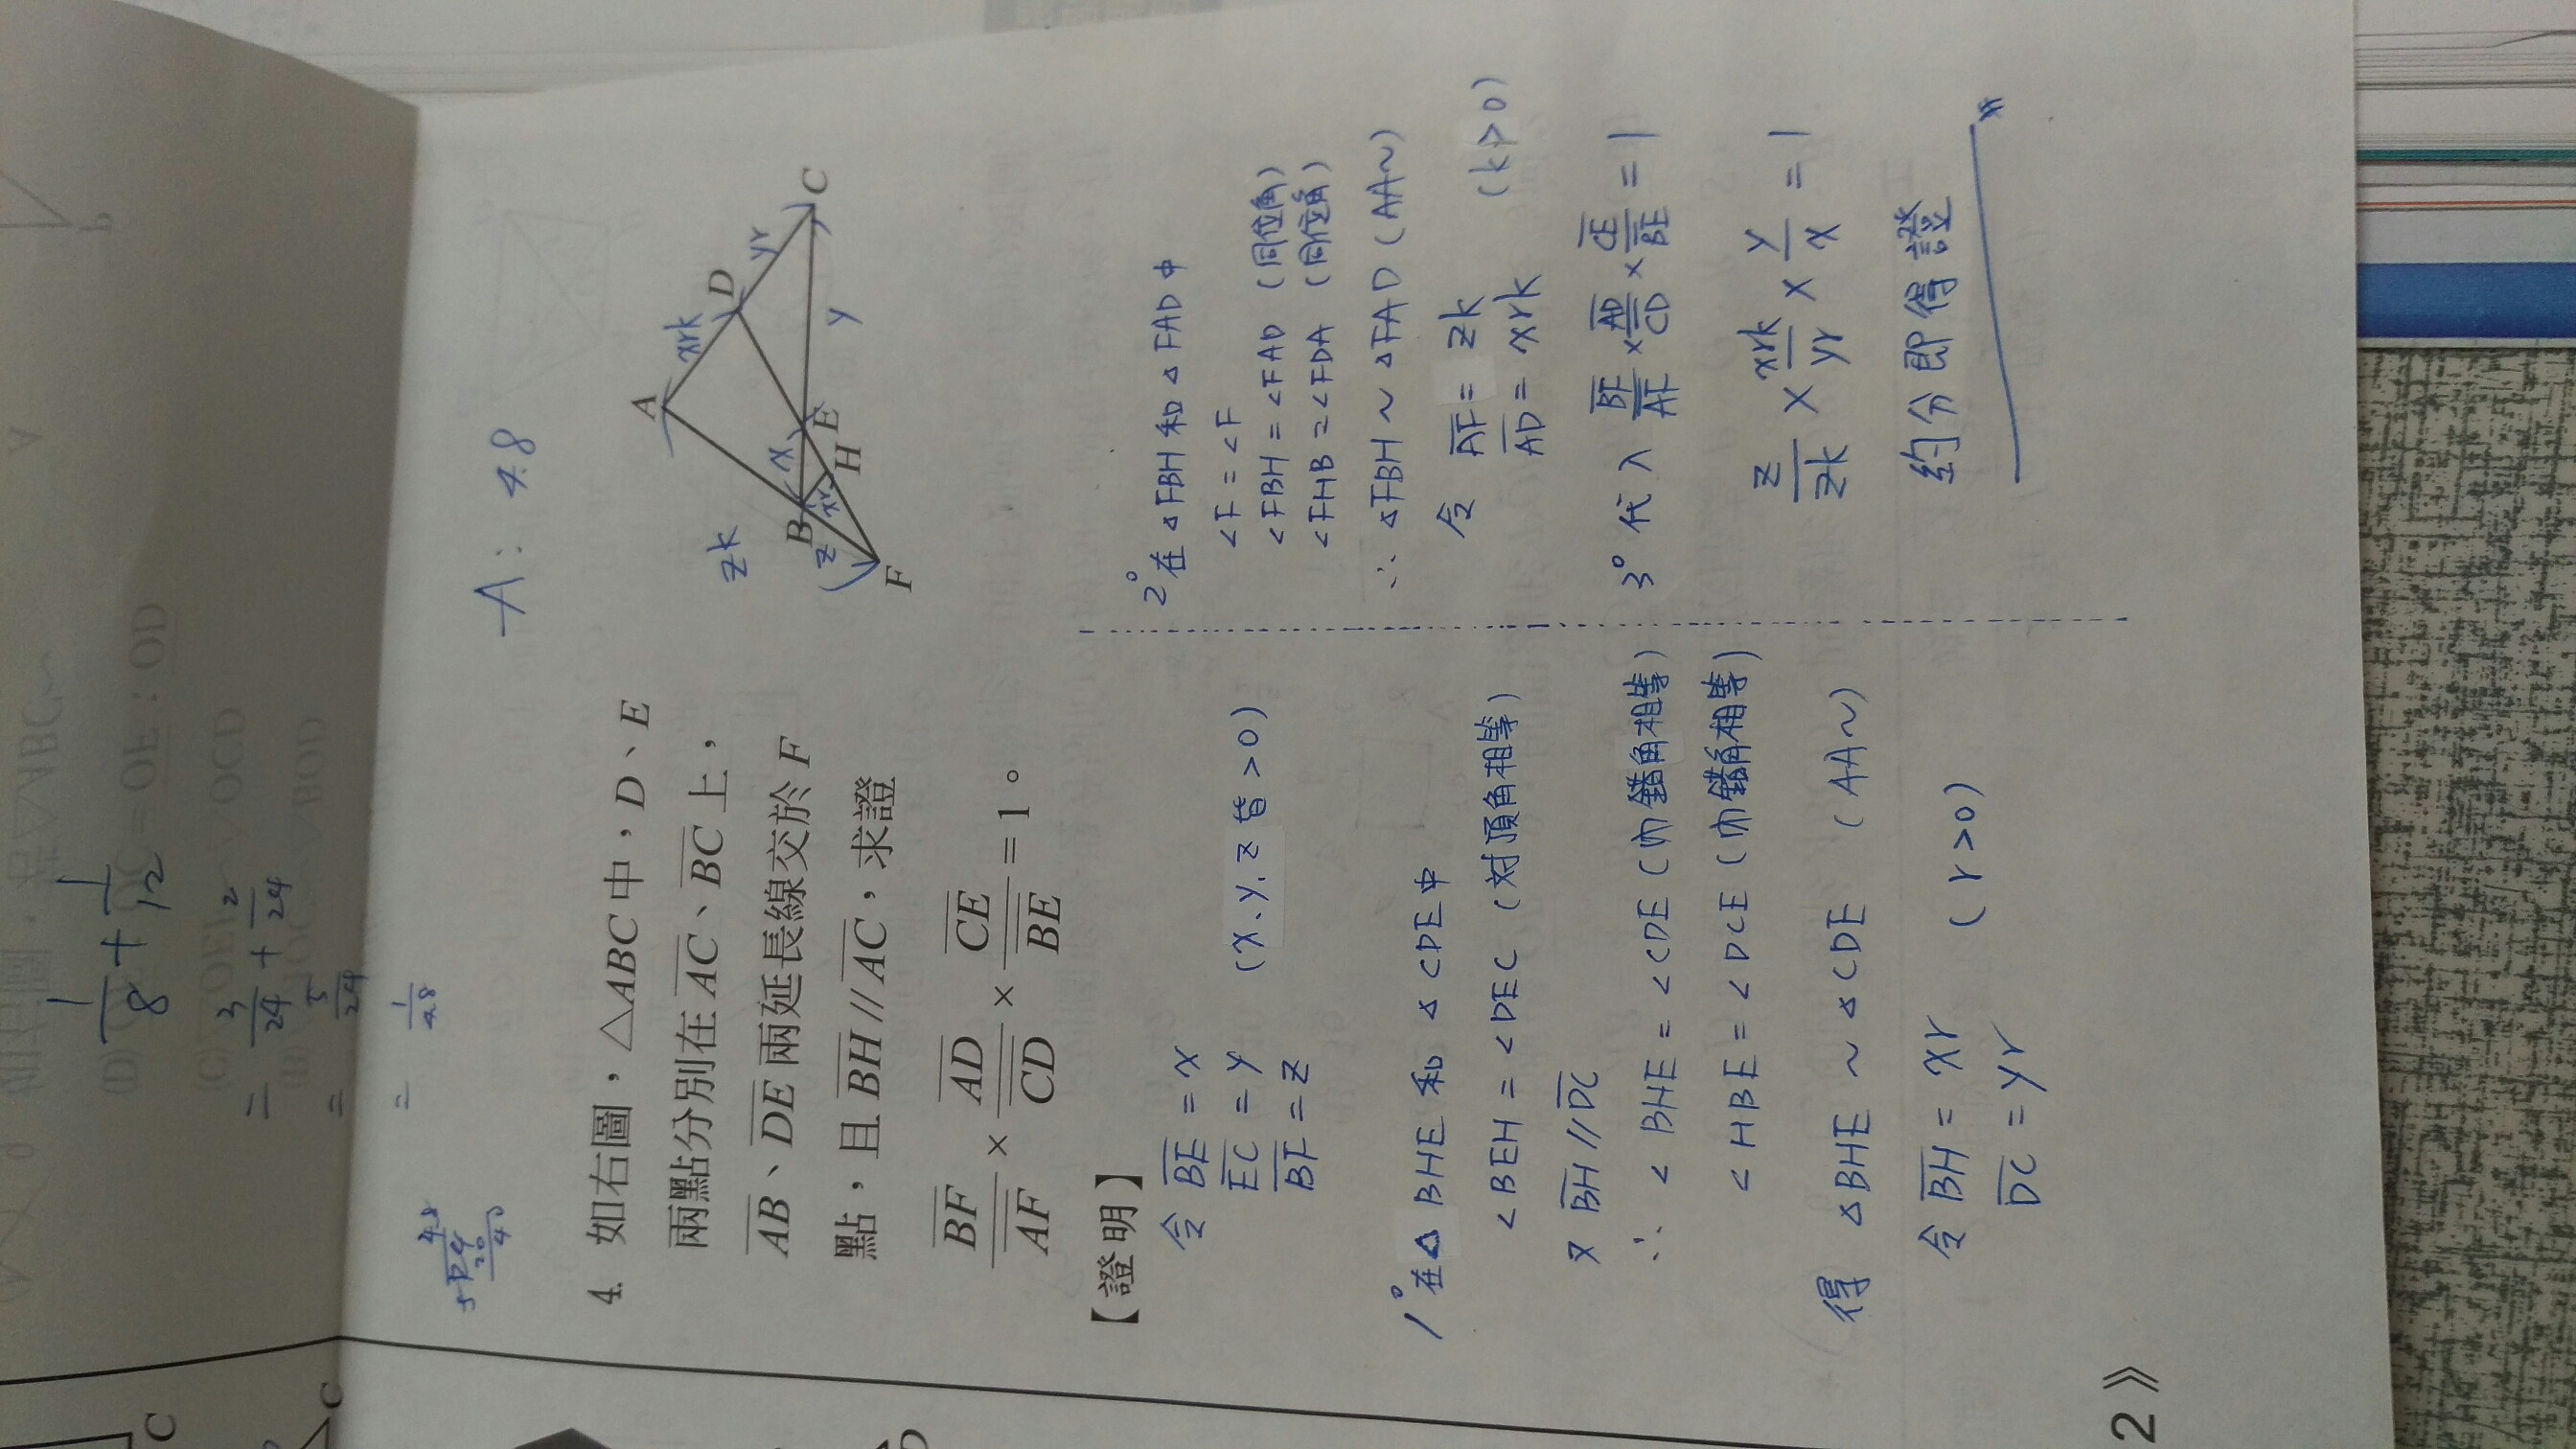 1/8 + 1/12
= 3/24 + 2/24
= 5/24
= 1/4.8
A：4.8
4. 如右圖，△ABC中，D、E
兩點分別在AC、BC上，
AB、DE兩延長線交於F
點，且BH // AC，求證
BF/AF × AD/CD × CE/BE = 1。
A
xrk
D
yr
C
zk
B
x
E
y
z
xr
H
F
【證明】
令 BE = x
EC = y (x、y、z皆>0)
BF = z
1° 在△BHE和△CDE中
∠BEH = ∠DEC (对頂角相等)
又 BH // DC
∴ ∠BHE = ∠CDE (內錯角相等)
∠HBE = ∠DCE (內錯角相等)
得 △BHE ~ △CDE (AA~)
令 BH = xr
DC = yr (r>0)
2° 在△FBH和△FAD中
∠F = ∠F
∠FBH = ∠FAD (同位角)
∠FHB = ∠FDA (同位角)
∴ △FBH ~ △FAD (AA~)
令 AF = zk
AD = xrk (k>0)
3° 代入 BF/AF × AD/CD × CE/BE = 1
z/zk × xrk/yr × y/x = 1
約分即得證
2》